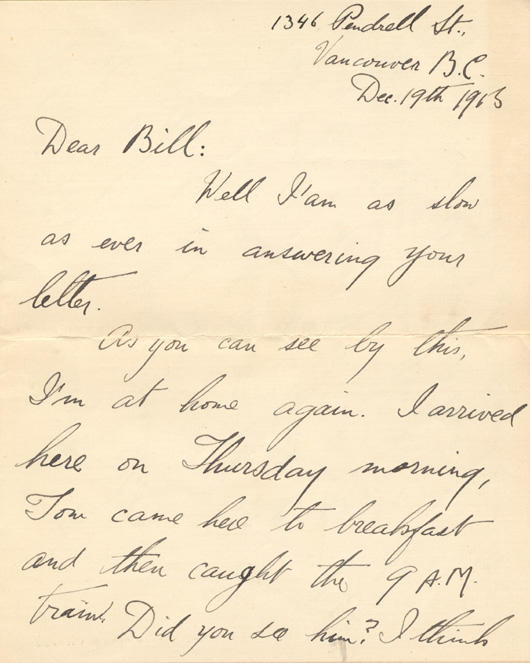 1346 Pendrell St.,
Vancouver B.C.
Dec. 19th 1913
Dear Bill:
Well I'am as slow
as ever in answering your
letter.
As you can see by this,
I'm at home again. I arrived
here on Thursday morning,
Tom came here to breakfast
and then caught the 9 A.M.
train. Did you see him? I think